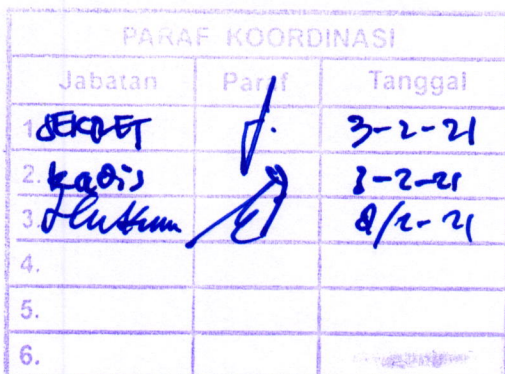 PARAF KOORDINASI
Jabatan Paraf Tanggal
1. SEKRET 3-2-21
2. Kadis 3-2-21
3. Hukum /2-21
4.
5.
6.